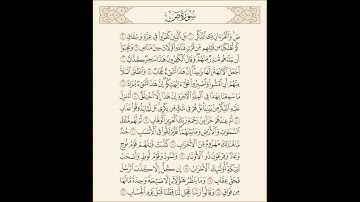 سُورَةُ صٓ
صٓ وَٱلْقُرْءَانِ ذِى ٱلذِّكْرِ ١ بَلِ ٱلَّذِينَ كَفَرُوا۟ فِى عِزَّةٍ وَشِقَاقٍ ٢
كَمْ أَهْلَكْنَا مِن قَبْلِهِم مِّن قَرْنٍ فَنَادَوا۟ وَّلَاتَ حِينَ مَنَاصٍ ٣ وَعَجِبُوٓا۟
أَن جَآءَهُم مُّنذِرٌ مِّنْهُمْ وَقَالَ ٱلْكَٰفِرُونَ هَٰذَا سَٰحِرٌ كَذَّابٌ ٤
أَجَعَلَ ٱلْءَالِهَةَ إِلَٰهًا وَٰحِدًا إِنَّ هَٰذَا لَشَىْءٌ عُجَابٌ ٥ وَٱنطَلَقَ ٱلْمَلَأُ
مِنْهُمْ أَنِ ٱمْشُوا۟ وَٱصْبِرُوا۟ عَلَىٰٓ ءَالِهَتِكُمْ إِنَّ هَٰذَا لَشَىْءٌ يُرَادُ ٦
مَا سَمِعْنَا بِهَٰذَا فِى ٱلْمِلَّةِ ٱلْءَاخِرَةِ إِنْ هَٰذَآ إِلَّا ٱخْتِلَٰقٌ ٧ أَءُنزِلَ
عَلَيْهِ ٱلذِّكْرُ مِنۢ بَيْنِنَا بَلْ هُمْ فِى شَكٍّ مِّن ذِكْرِى بَل لَّمَّا يَذُوقُوا۟ عَذَابِ ٨
أَمْ عِندَهُمْ خَزَآئِنُ رَحْمَةِ رَبِّكَ ٱلْعَزِيزِ ٱلْوَهَّابِ ٩ أَمْ لَهُم مُّلْكُ
ٱلسَّمَٰوَٰتِ وَٱلْأَرْضِ وَمَا بَيْنَهُمَا فَلْيَرْتَقُوا۟ فِى ٱلْأَسْبَٰبِ ١٠ جُندٌ
مَّا هُنَالِكَ مَهْزُومٌ مِّنَ ٱلْأَحْزَابِ ١١ كَذَّبَتْ قَبْلَهُمْ قَوْمُ نُوحٍ
وَعَادٌ وَفِرْعَوْنُ ذُو ٱلْأَوْتَادِ ١٢ وَثَمُودُ وَقَوْمُ لُوطٍ وَأَصْحَٰبُ
لْـَٔيْكَةِ أُو۟لَٰٓئِكَ ٱلْأَحْزَابُ ١٣ إِن كُلٌّ إِلَّا كَذَّبَ ٱلرُّسُلَ
فَحَقَّ عِقَابِ ١٤ وَمَا يَنظُرُ هَٰٓؤُلَآءِ إِلَّا صَيْحَةً وَٰحِدَةً مَّا لَهَا
مِن فَوَاقٍ ١٥ وَقَالُوا۟ رَبَّنَا عَجِّل لَّنَا قِطَّنَا قَبْلَ يَوْمِ ٱلْحِسَابِ ١٦